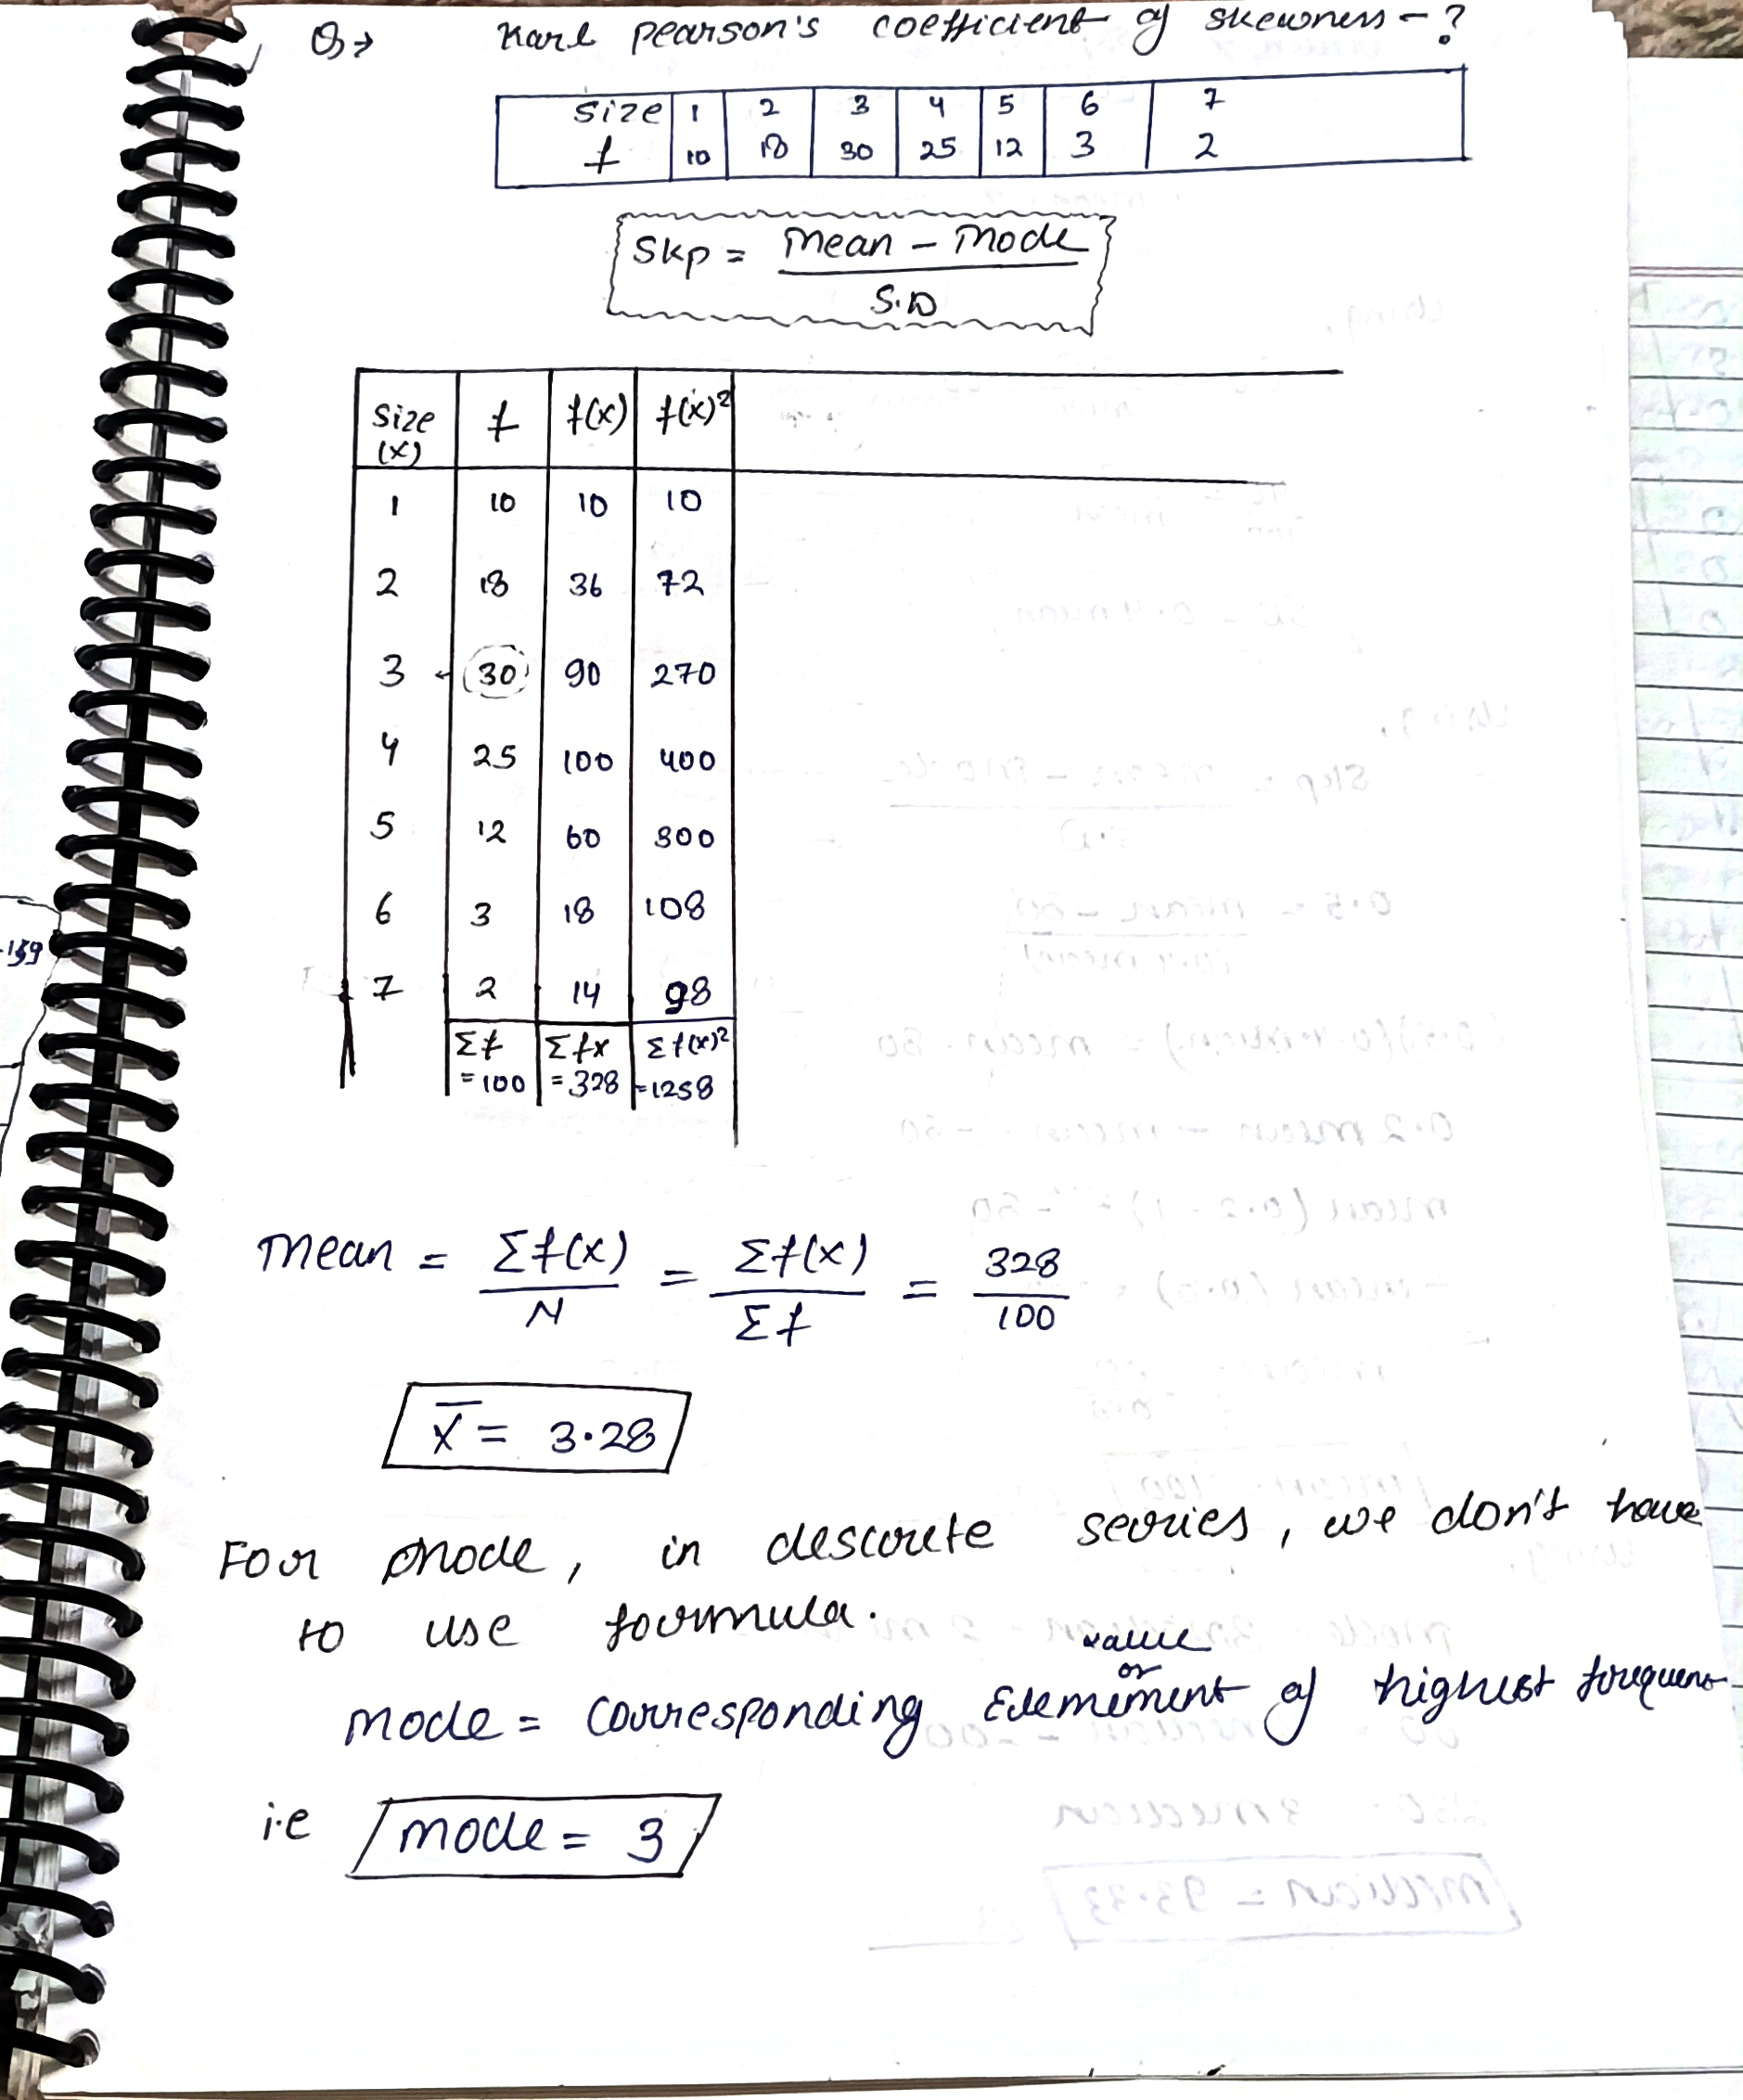 Q→ Karl pearson's coefficient of skewness - ?
Size 1 2 3 4 5 6 7
f 10 18 30 25 12 3 2
Skp = Mean - Mode
S.D
Size (x) f f(x) f(x)²
1 10 10 10
2 18 36 72
3 30 90 270
4 25 100 400
5 12 60 300
6 3 18 108
7 2 14 98
Σf Σfx Σf(x)²
=100 =328 =1258
-159
Mean = Σf(x) = Σf(x) = 328
N Σf 100
X̄ = 3.28
For mode, in descrete series, we don't have
to use formula.
value
or
Mode = Corresponding Elemement of highest frequent
i.e mode = 3